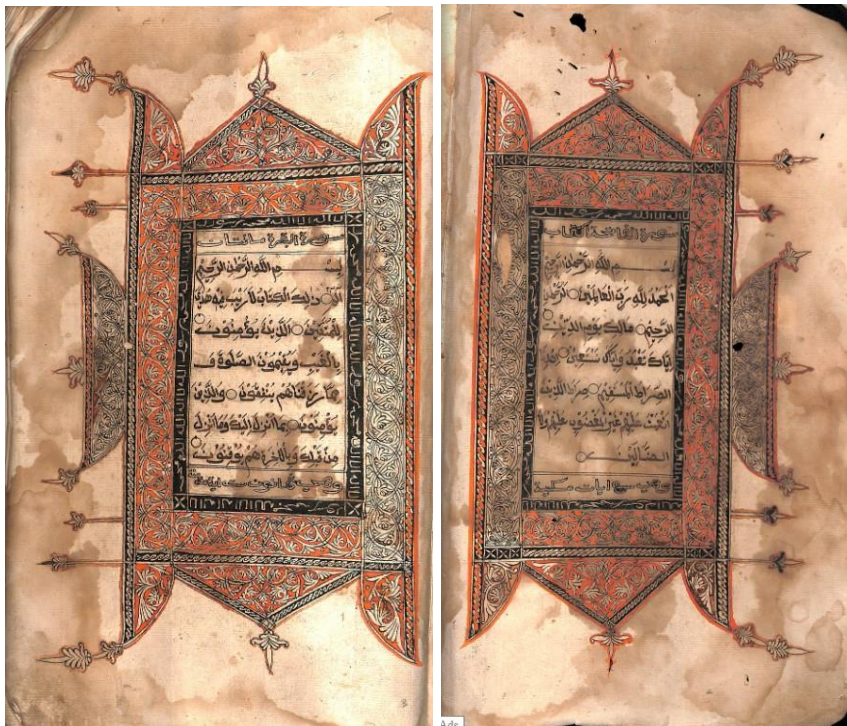 سورة الفاتحة الكتاب
بسم الله الرحمن الرحيم
الحمد لله رب العالمين الرحمن
الرحيم مالك يوم الدين
إياك نعبد وإياك نستعين
الصراط المستقيم صراط الذين
انعمت عليهم غير المغضوب عليهم ولا
الضالين
سبع ايات مكية
سورة البقرة مائتان
بسم الله الرحمن الرحيم
الم ذلك الكتاب لا ريب فيه هدى
للمتقين الذين يؤمنون
بالغيب ويقيمون الصلوة و
مما رزقناهم ينفقون والذين
يؤمنون بما أنزل إليك وما أنزل
من قبلك وبالآخرة هم يوقنون
لا اله الا الله محمد رسول الله
Ads